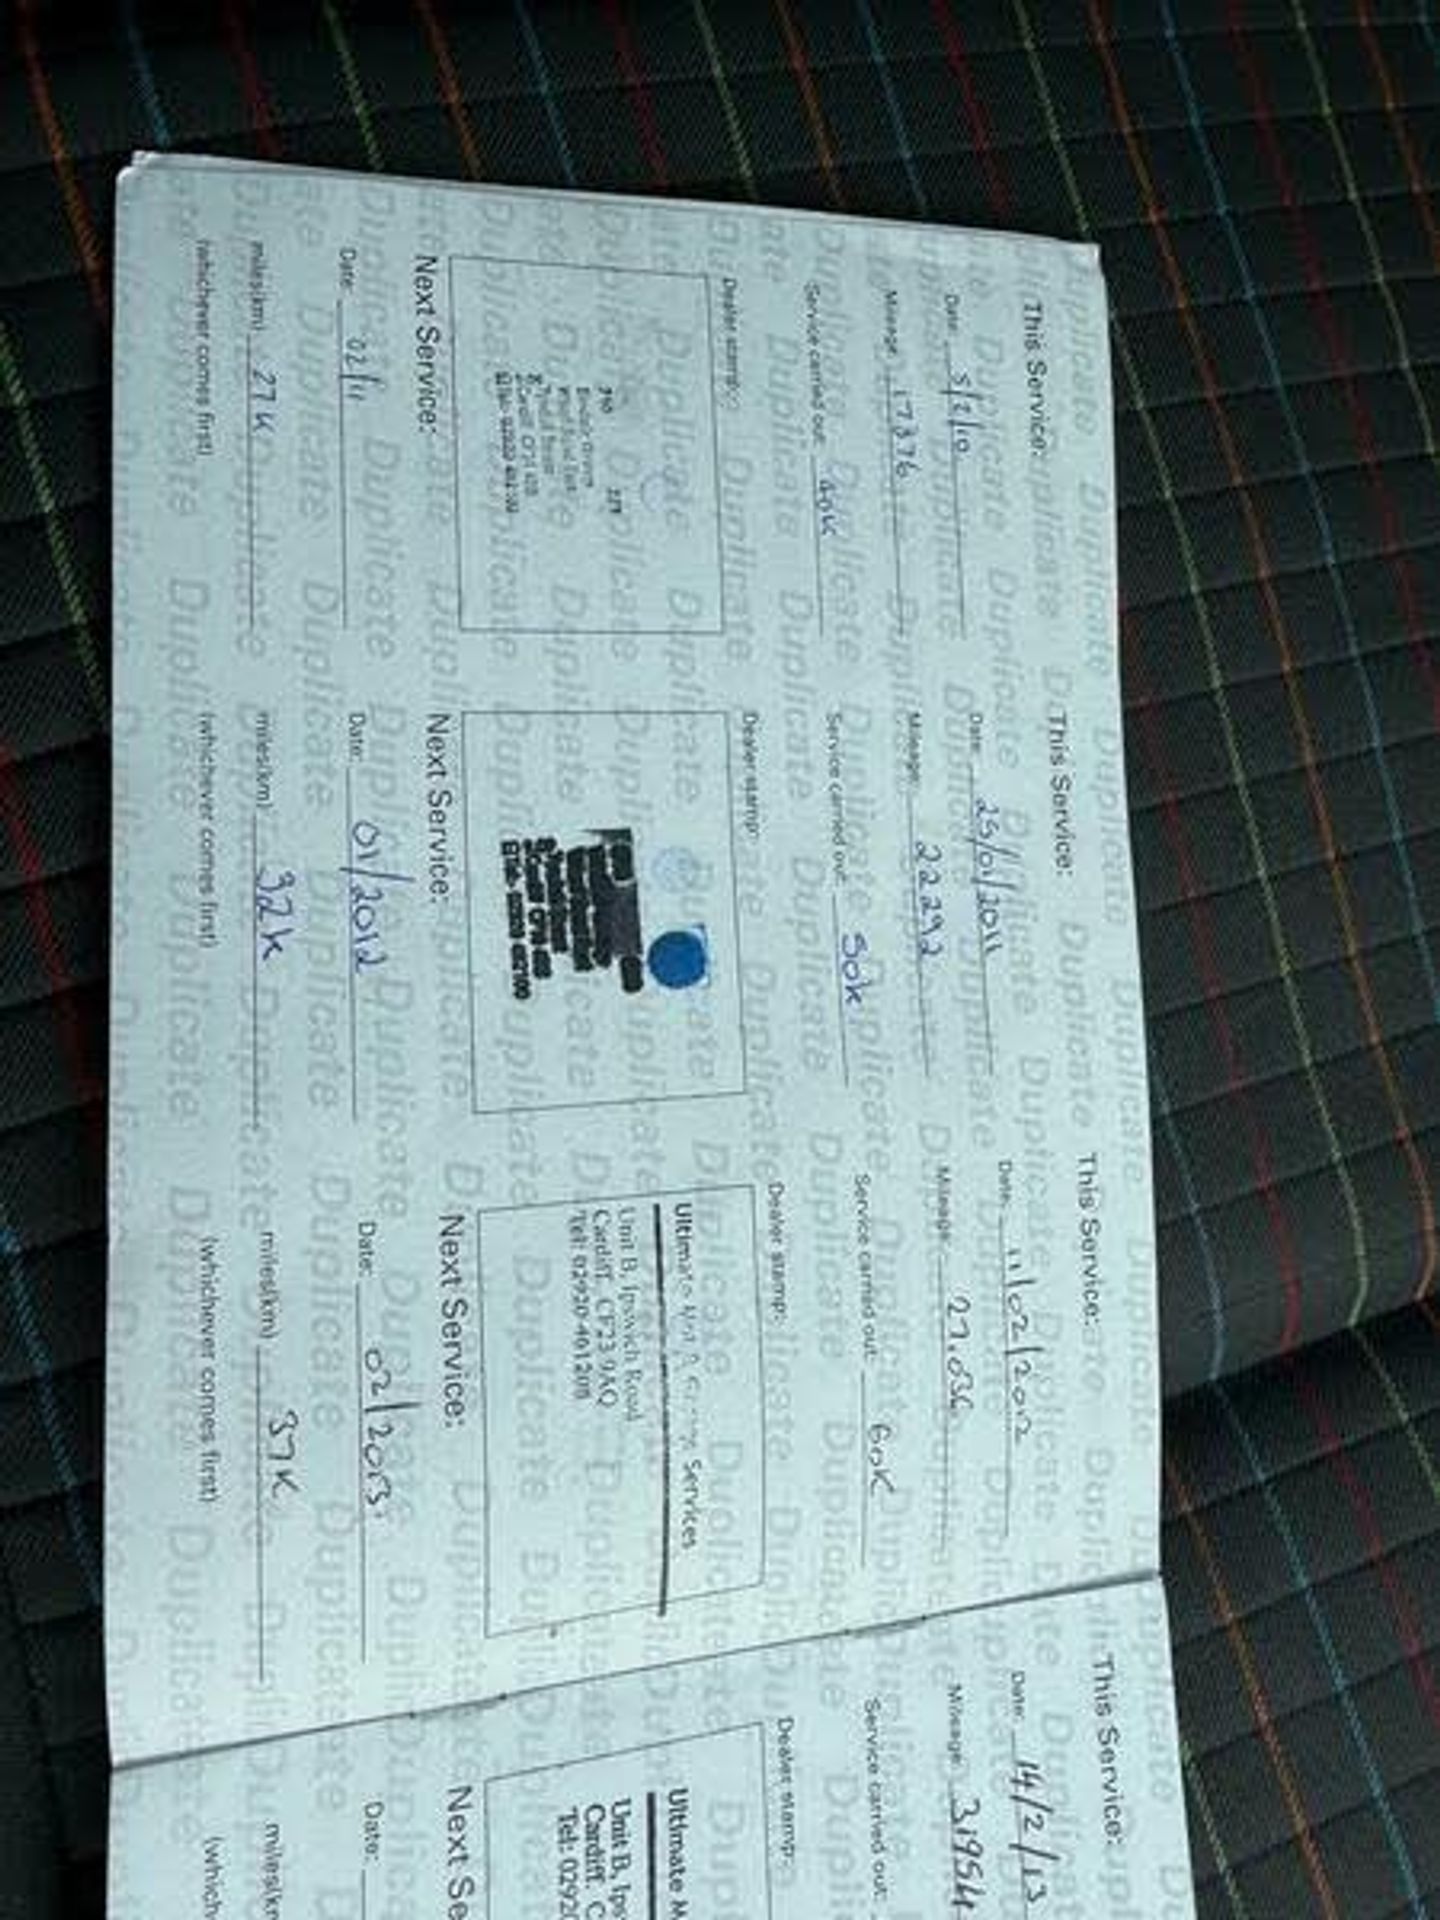 This Service:
Date: 5/2/10
Mileage: 17376
Service carried out: 40K
Dealer stamp:
Next Service:
Date: 02/11
miles(km) 27K
(whichever comes first)
This Service:
Date: 25/01/2011
Mileage: 22292
Service carried out: 50K
Dealer stamp:
Next Service:
Date: 01/2012
miles(km) 32K
(whichever comes first)
This Service:
Date: 11/02/2012
Mileage: 27,036
Service carried out: 60K
Dealer stamp:
Ultimate Services
Unit B, Ipswich Road
Cardiff. CF23 9AQ
Tel: 02920-461208
Next Service:
Date: 02/2013
miles(km) 37K
(whichever comes first)
This Service:
Date: 14/2/13
Mileage: 31954
Service carried out:
Dealer stamp:
Ultimate M
Unit B, Ips
Cardiff. C
Tel: 0292
Next Se
Date:
miles(km
(which
Duplicate Duplicate Duplicate Duplicate